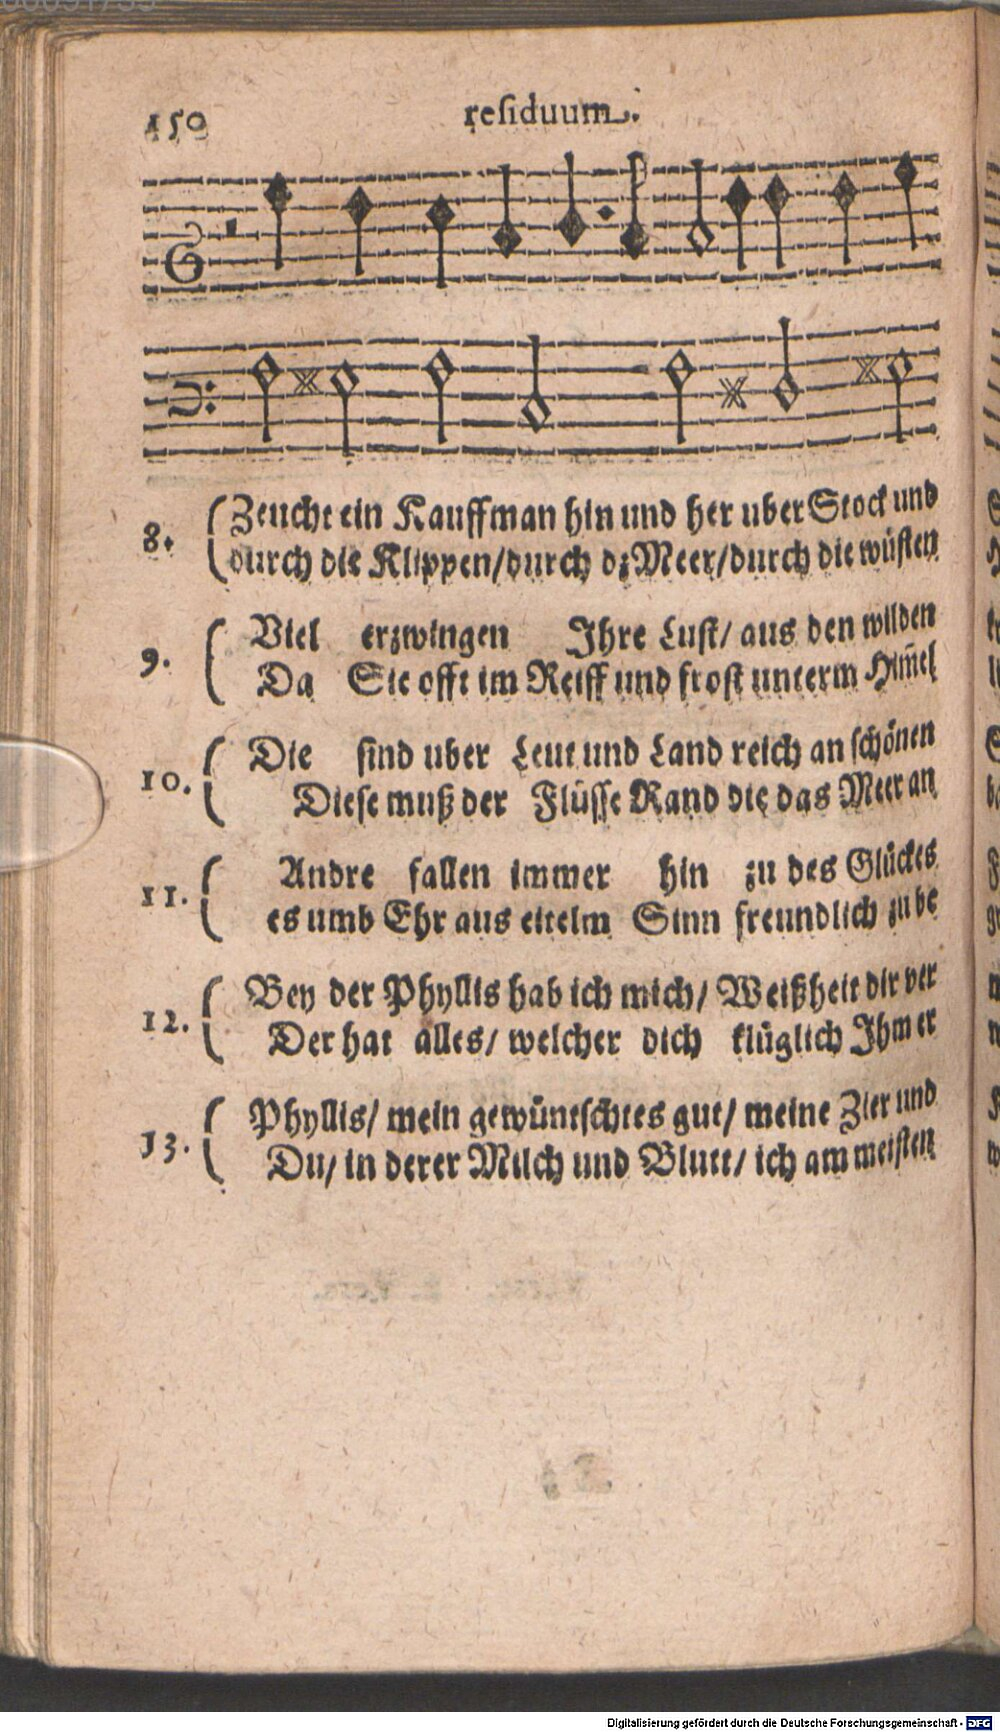 150
reſiduum.
8. Zeucht ein Kauffman hin und her uber Stock und
durch die Klippen/durch dz Meer/durch die wüſten
9. Viel erzwingen Ihre Luſt/ aus den wilden
Da Sie offt im Reiff und froſt unterm Him̃el
10. Die ſind uber Leut und Land reich an ſchönen
Dieſe muß der Flüſſe Rand die das Meer an
11. Andre fallen immer hin zu des Glückes
es umb Ehr aus eitelm Sinn freundlich zu be
12. Bey der Phyllis hab ich mich/ Weißheit dir ver
Der hat alles/ welcher dich klüglich Ihm er
13. Phyllis/ mein gewüntſchtes gut/ meine Zier und
Du/ in derer Milch und Blutt/ ich am meiſten
Digitalisierung gefördert durch die Deutsche Forschungsgemeinschaft - DFG